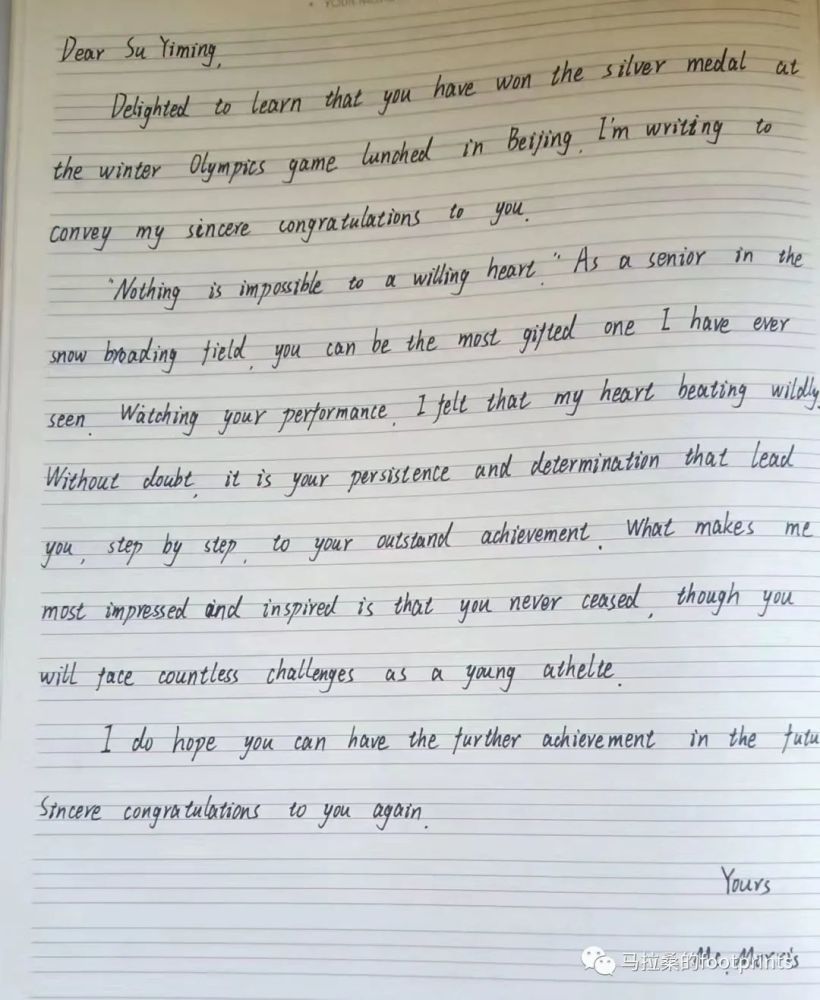 Dear Su Yiming,
Delighted to learn that you have won the silver medal at
the winter Olympics game lunched in Beijing, I'm writing to
convey my sincere congratulations to you.
"Nothing is impossible to a willing heart." As a senior in the
snow broading field, you can be the most gifted one I have ever
seen. Watching your performance, I felt that my heart beating wildly.
Without doubt, it is your persistence and determination that lead
you, step by step, to your outstand achievement. What makes me
most impressed and inspired is that you never ceased, though you
will face countless challenges as a young athelte.
I do hope you can have the further achievement in the futu
Sincere congratulations to you again.
Yours
马拉桑的footprints